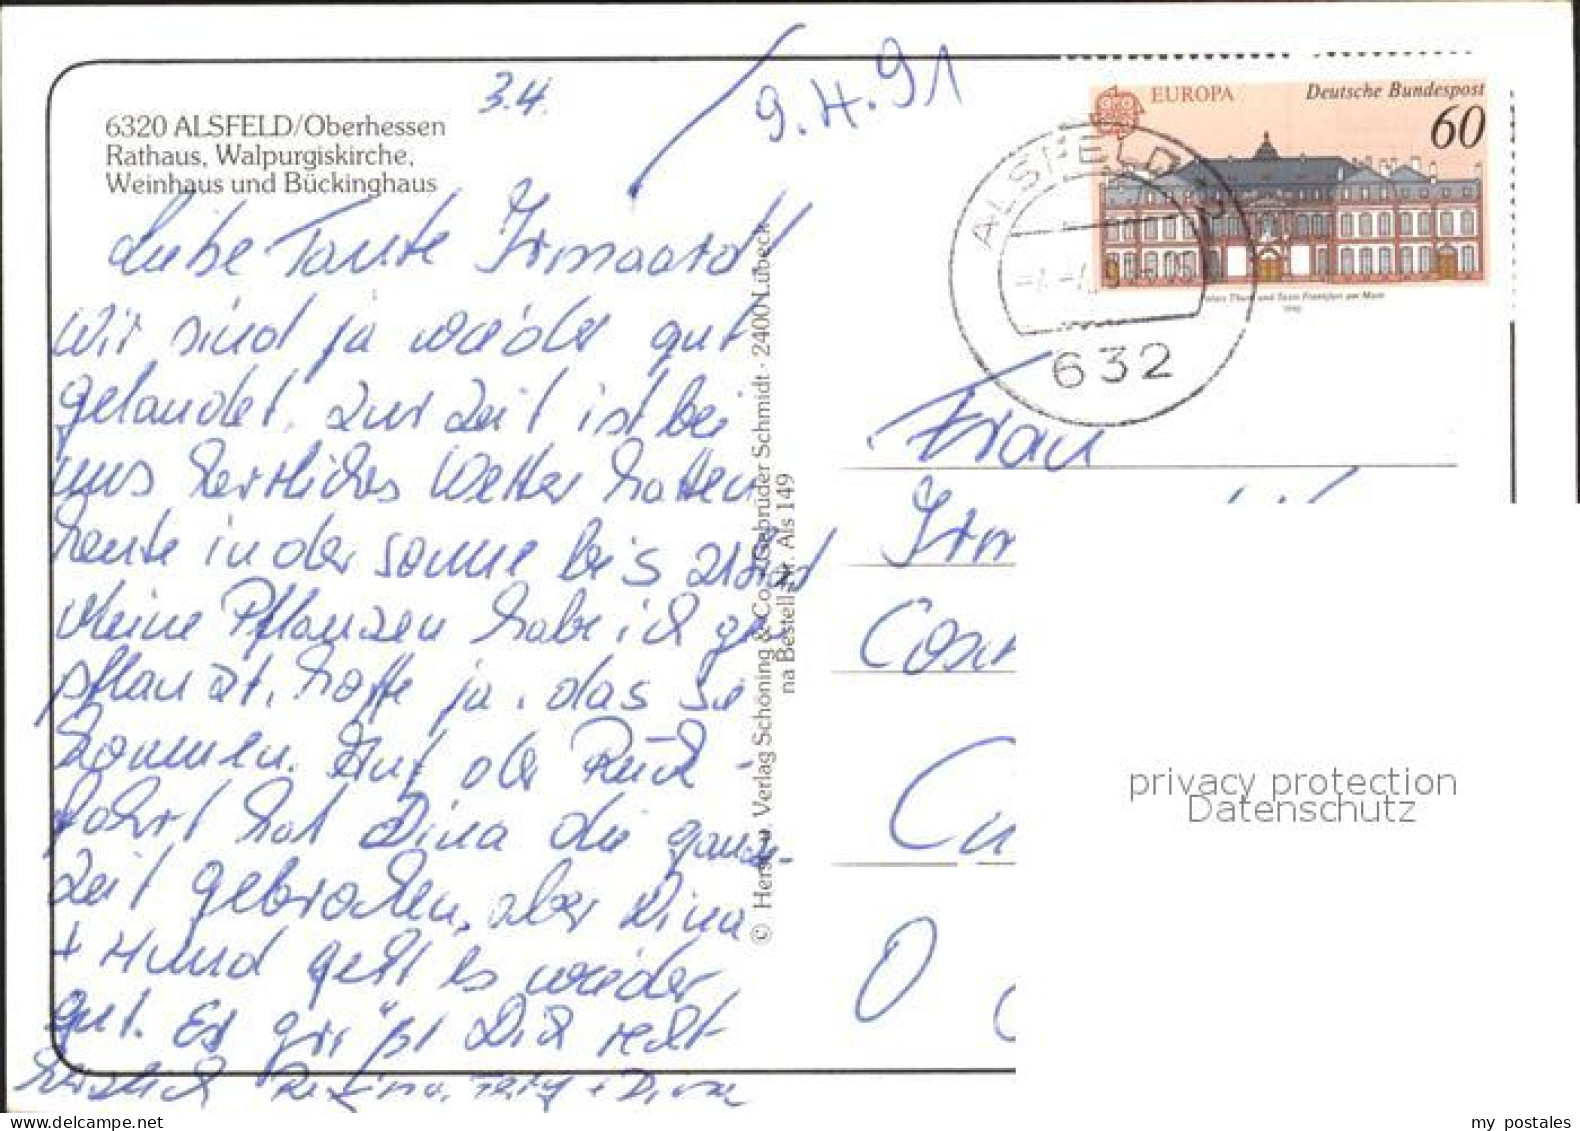 3.4.
9.4.91
6320 ALSFELD/Oberhessen
Rathaus, Walpurgiskirche,
Weinhaus und Bückinghaus
EUROPA Deutsche Bundespost
60
Palais Thurn und Taxis Frankfurt am Main
1990
ALSFELD
632
Liebe Tante Irmgard!
Wir sind ja wieder gut
gelandet. Zur Zeit ist bei
uns herrliches Wetter hatten
heute in der Sonne bis 21 Grad
Meine Pflanzen habe ich ge
pflanzt. hoffe ja, das sie
kommen. Auf der Rück-
fahrt hat Dina die ganze
Zeit gebrochen, aber Dina
+ Hund geht es wieder
gut. Es grüßt Dich recht
herzlich
© Herst. u. Verlag Schöning & Co. + Gebrüder Schmidt · 2400 Lübeck
na Bestell-Nr. Als 149
Frau
Irm
Cu
O
privacy protection
Datenschutz
my postales